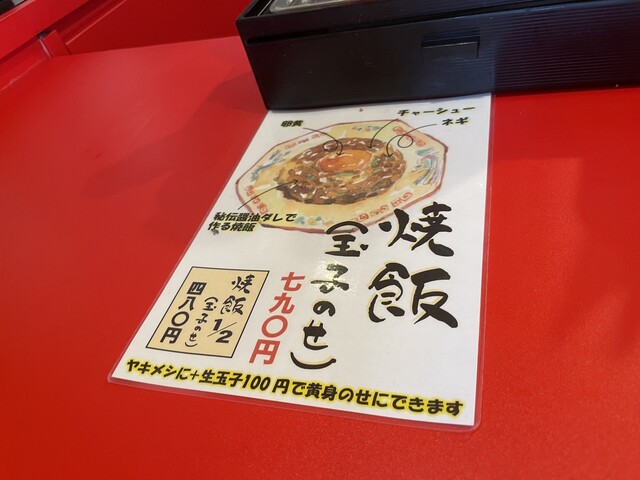 卵黄
チャーシュー
ネギ
秘伝醤油ダレで
作る焼飯
焼飯
(玉子のせ)
七九〇円
焼飯1/2
(玉子のせ)
四八〇円
ヤキメシに+生玉子100円で黄身のせにできます